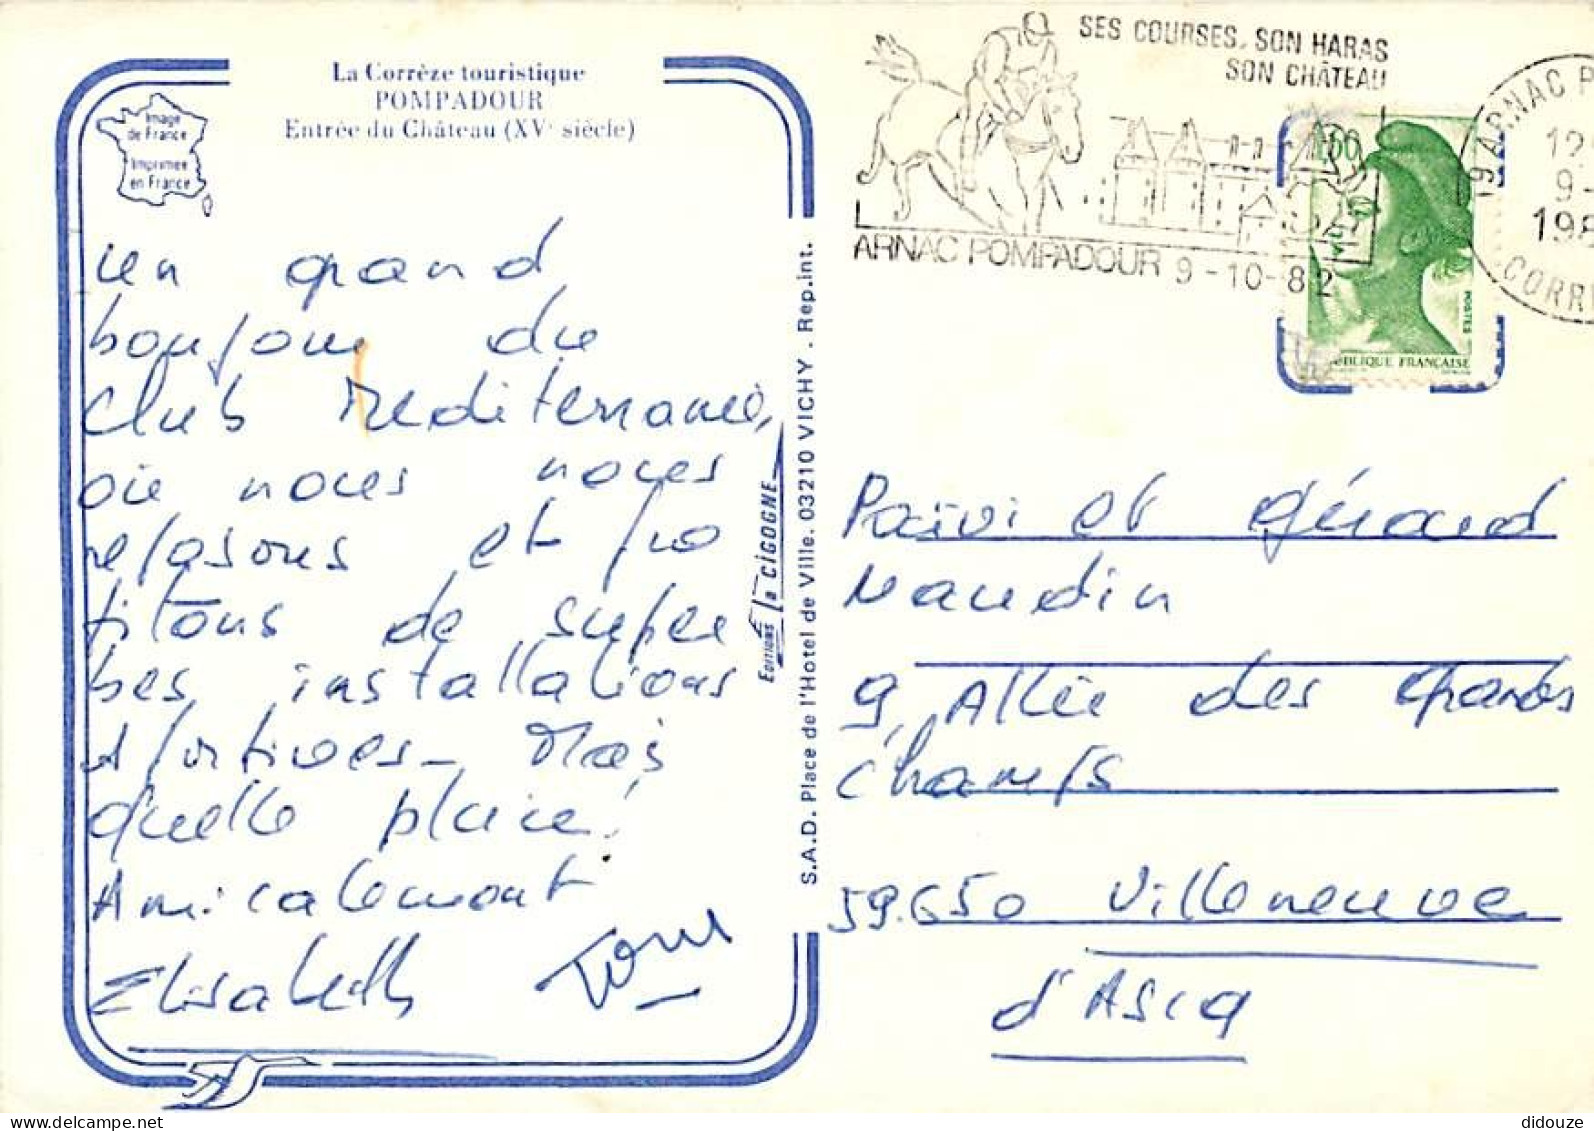 La Corrèze touristique
POMPADOUR
Entrée du Château (XVe siècle)
Image
de France
Imprimée
en France
un grand
bonjour du
Club Mediterranée,
où nous nous
reposons et pro
fitons de super
bes installations
sportives - Mais
quelle pluie!
Amicalement
Elisabeth
Editions la CIGOGNE
S.A.D. Place de l'Hotel de Ville. 03210 VICHY. Rep.int.
SES COURSES, SON HARAS
SON CHÂTEAU
ARNAC POMPADOUR 9-10-82
19 ARNAC P
12
9-
198
CORR
1,60
POSTES
RÉPUBLIQUE FRANÇAISE
Païvi et Gérard
Naudin
9, Allée des Grands
Champs
59.650 Villeneuve
d'Ascq
didouze